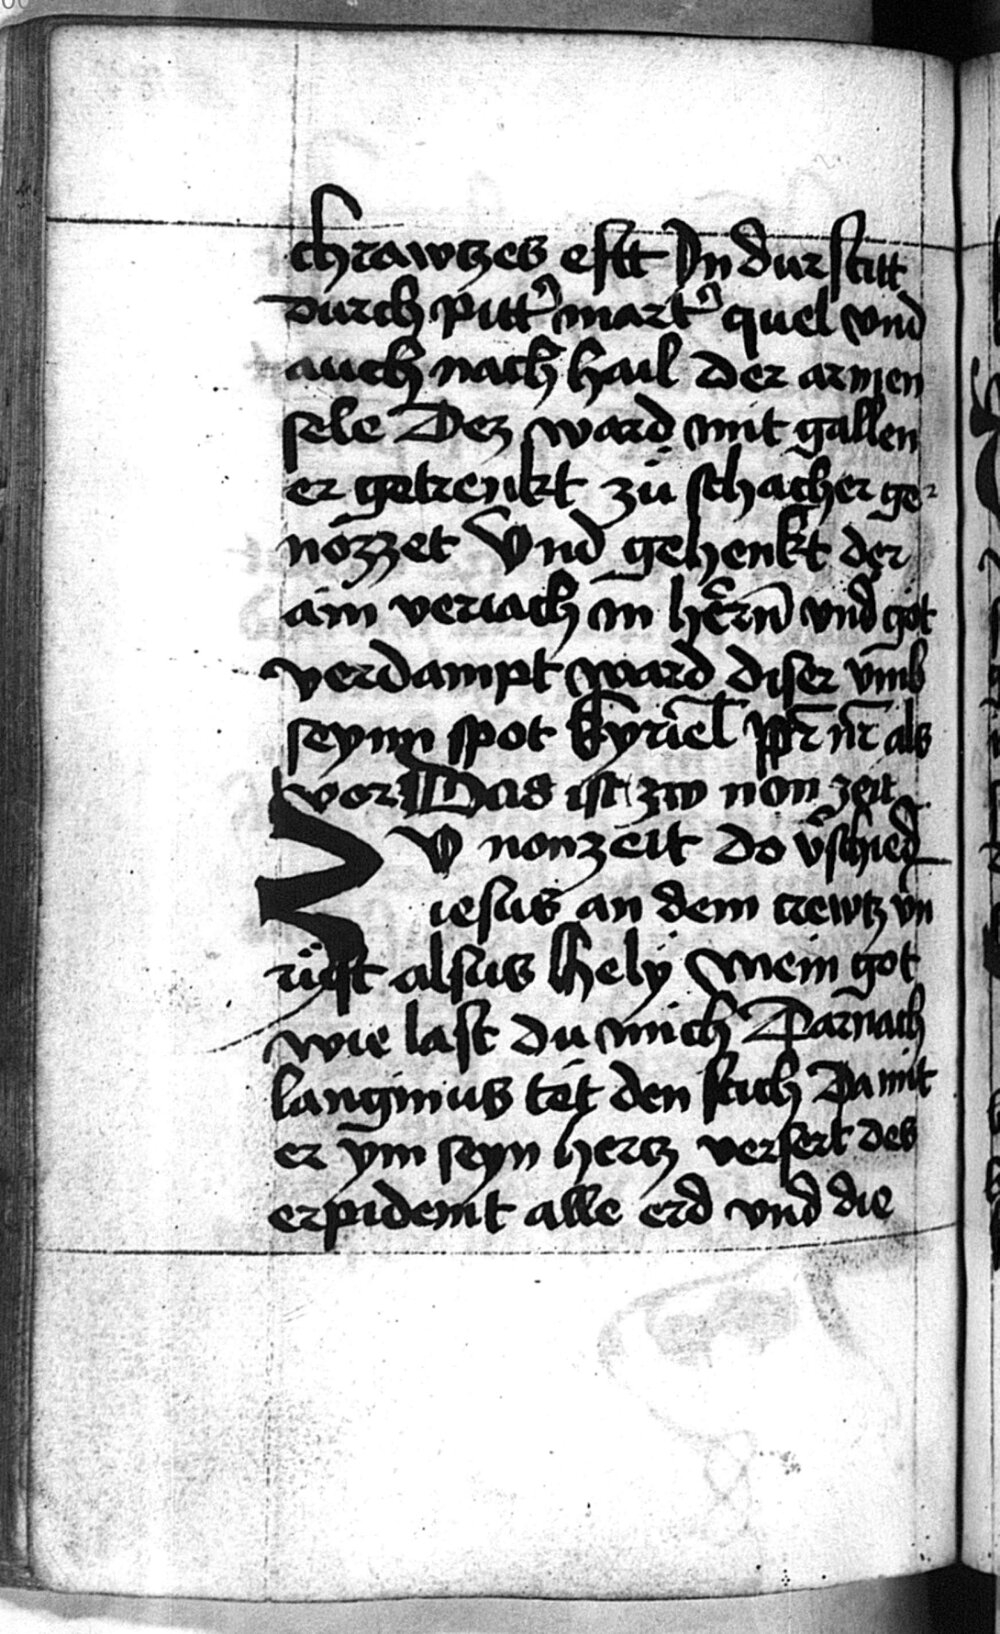 chrawtzes estt Jn durstitt
durch pitt' mart' quel vnd
auch nach hail der armen
sele Dez ward mit gallen
er getrenkt zü schacher ge
nözzet Vnd gehenkt der
aim veriach in̄ hern̄ vnd got
verdampt ward diser vmb
seynn spot kyriel pr̄ nr̄ als
vor Das ist zw non zeit
ZV nonzeit do v̄schied
iesus an dem crewtz vn
rüft alsus hely mein got
wie last du mich Darnach
langinus tet den stich Damit
er ym seyn hertz versert des
erpidemt alle erd vnd die